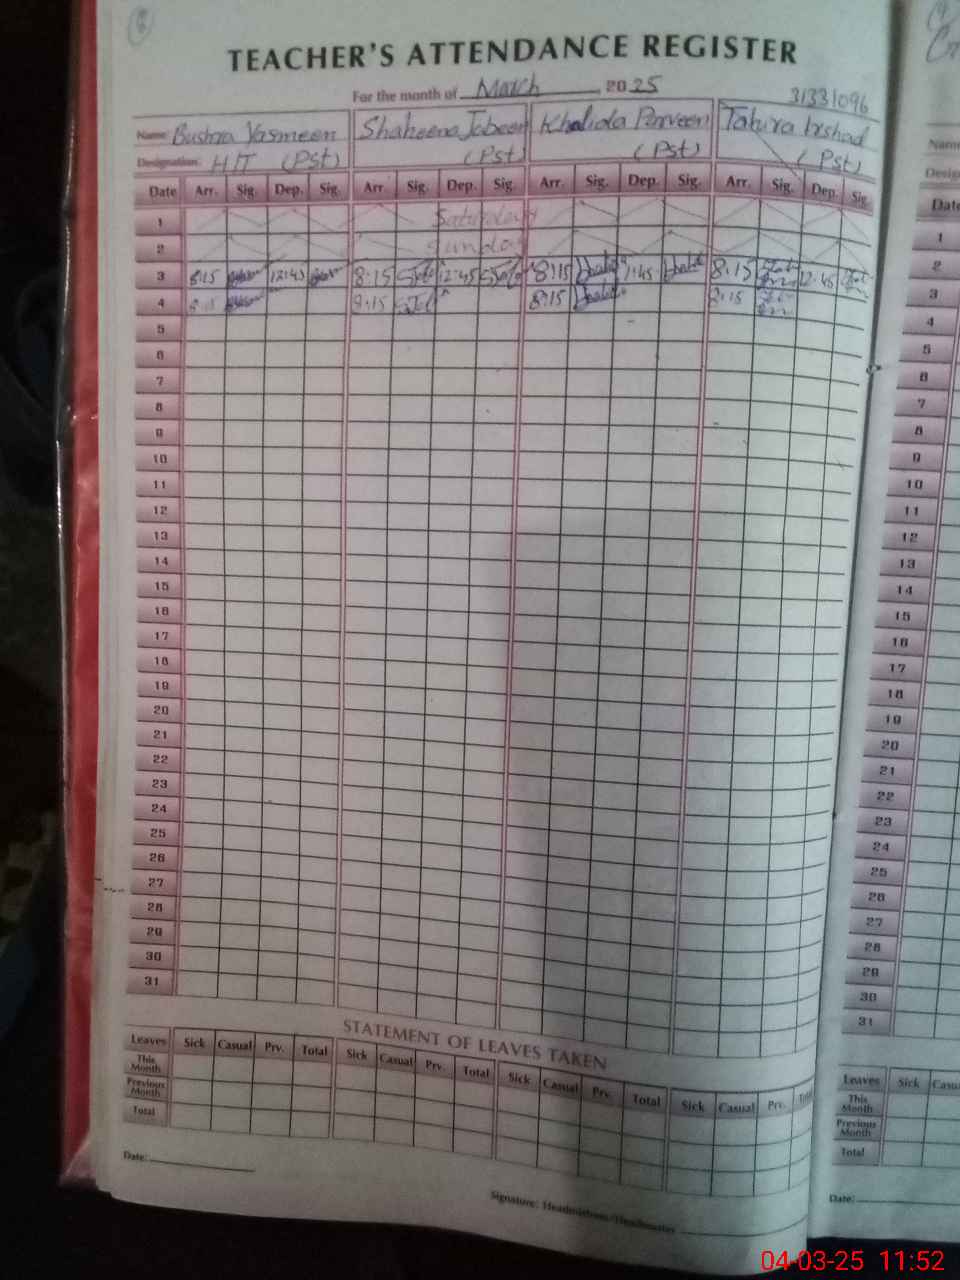 TEACHER'S ATTENDANCE REGISTER
For the month of March, 2025
31331096
Name: Bushra Yasmeen Shaheena Jabeen Khalida Parveen Tahira Irshad
Designation: HT (Pst) (Pst) (Pst) (Pst)
Date Arr. Sig. Dep. Sig. Arr. Sig. Dep. Sig. Arr. Sig. Dep. Sig. Arr. Sig. Dep. Sig.
1 Saturday
2 Sunday
3 8:15 12:45 8:15 12:45 8:15 1:45 8:15 12:45
4 8:15 8:15 8:15 8:15
5
6
7
8
9
10
11
12
13
14
15
16
17
18
19
20
21
22
23
24
25
26
27
28
29
30
31
STATEMENT OF LEAVES TAKEN
Leaves Sick Casual Prv. Total Sick Casual Prv. Total Sick Casual Prv. Total Sick Casual Prv.
This Month
Previous Month
Total
Date:
Signature: Headmistress/Headmaster
Name
Date
1
2
3
4
5
6
7
8
9
10
11
12
13
14
15
16
17
18
19
20
21
22
23
24
25
26
27
28
29
30
31
Leaves Sick
This Month
Previous Month
Total
Date:
04-03-25 11:52